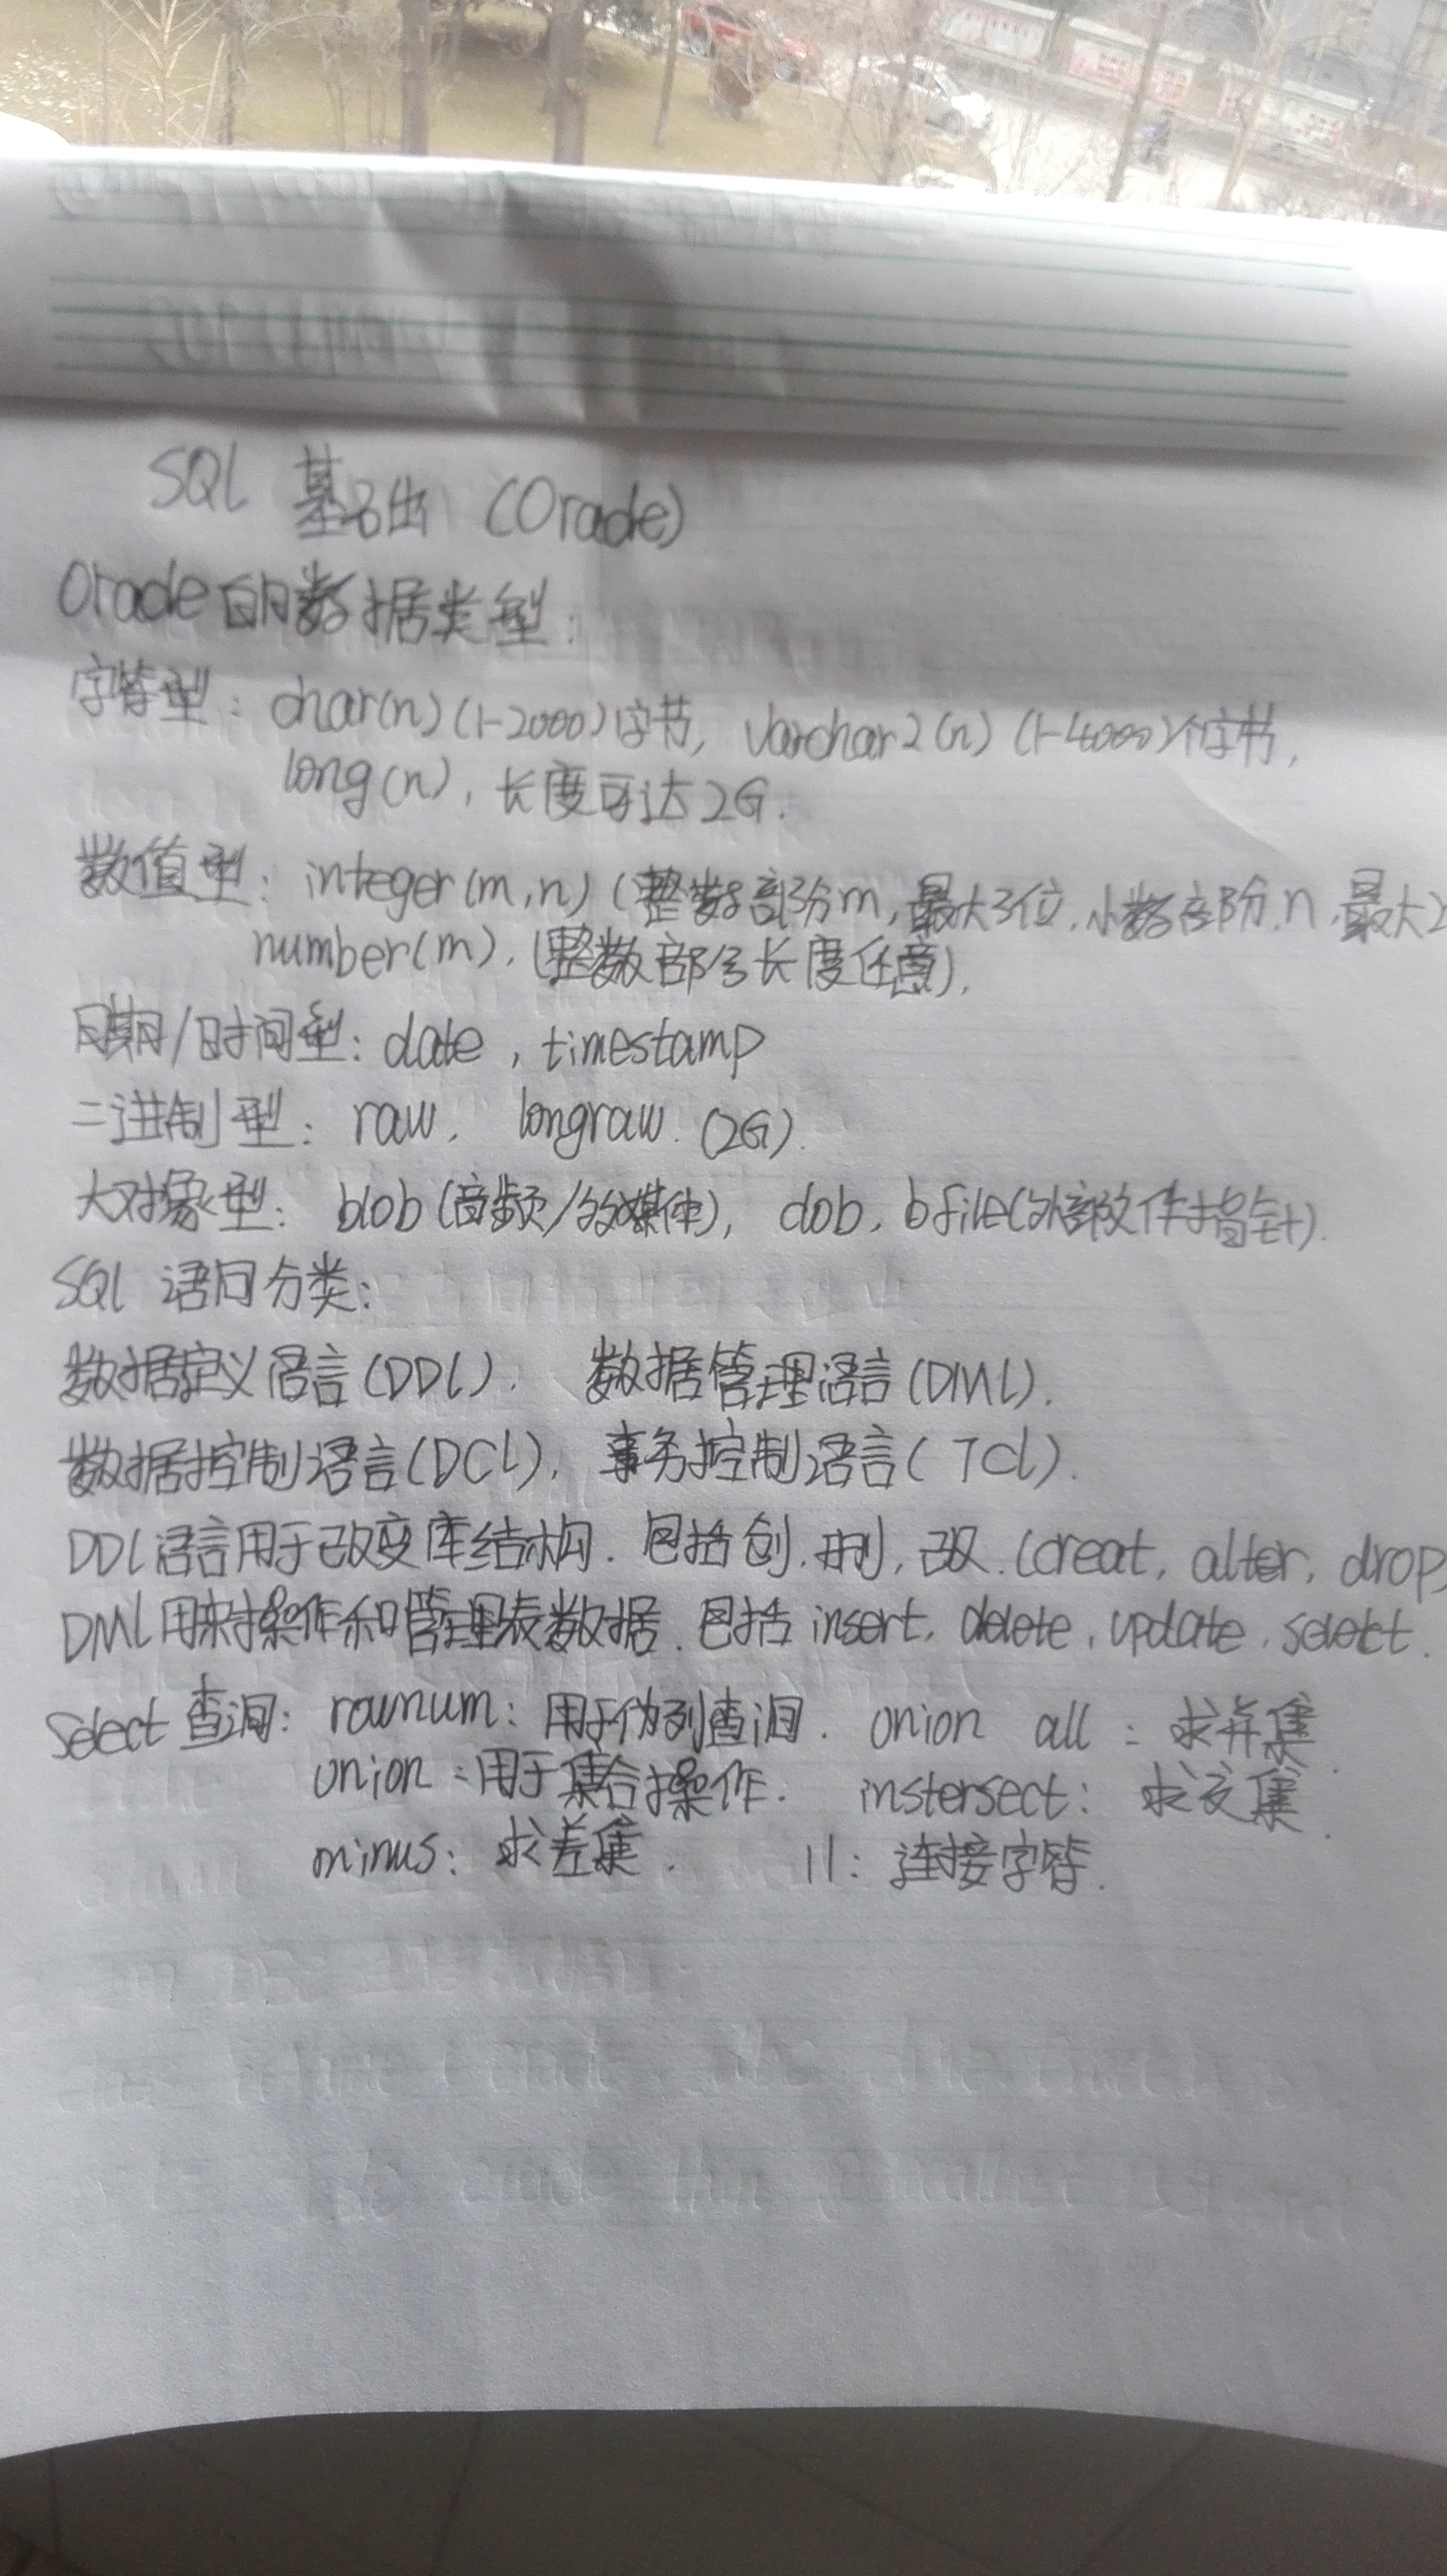 SQL 基础 (Oracle)
Oracle的数据类型：
字符型：char(n)(1-2000)字节，varchar2(n)(1-4000)个字节，
long(n)，长度可达2G.
数值型：integer(m,n)(整数部分m,最大3位,小数部分,n,最大2
number(m).(整数部分长度任意).
日期/时间型：date，timestamp
二进制型：raw. longraw.(2G).
大对象型：blob(音频/多媒体)，clob，bfile(外部文件指针).
SQL 语句分类：
数据定义语言(DDL). 数据管理语言(DML).
数据控制语言(DCL)，事务控制语言(TCL).
DDL语言用于改变库结构. 包括创,删,改.(creat, alter, drop)
DML用来操作和管理表数据.包括insert, delete, update, select.
Select 查询：rownum：用于伪列查询. union all：求并集.
union：用于集合操作. instersect：求交集.
minus：求差集. ||：连接字符.